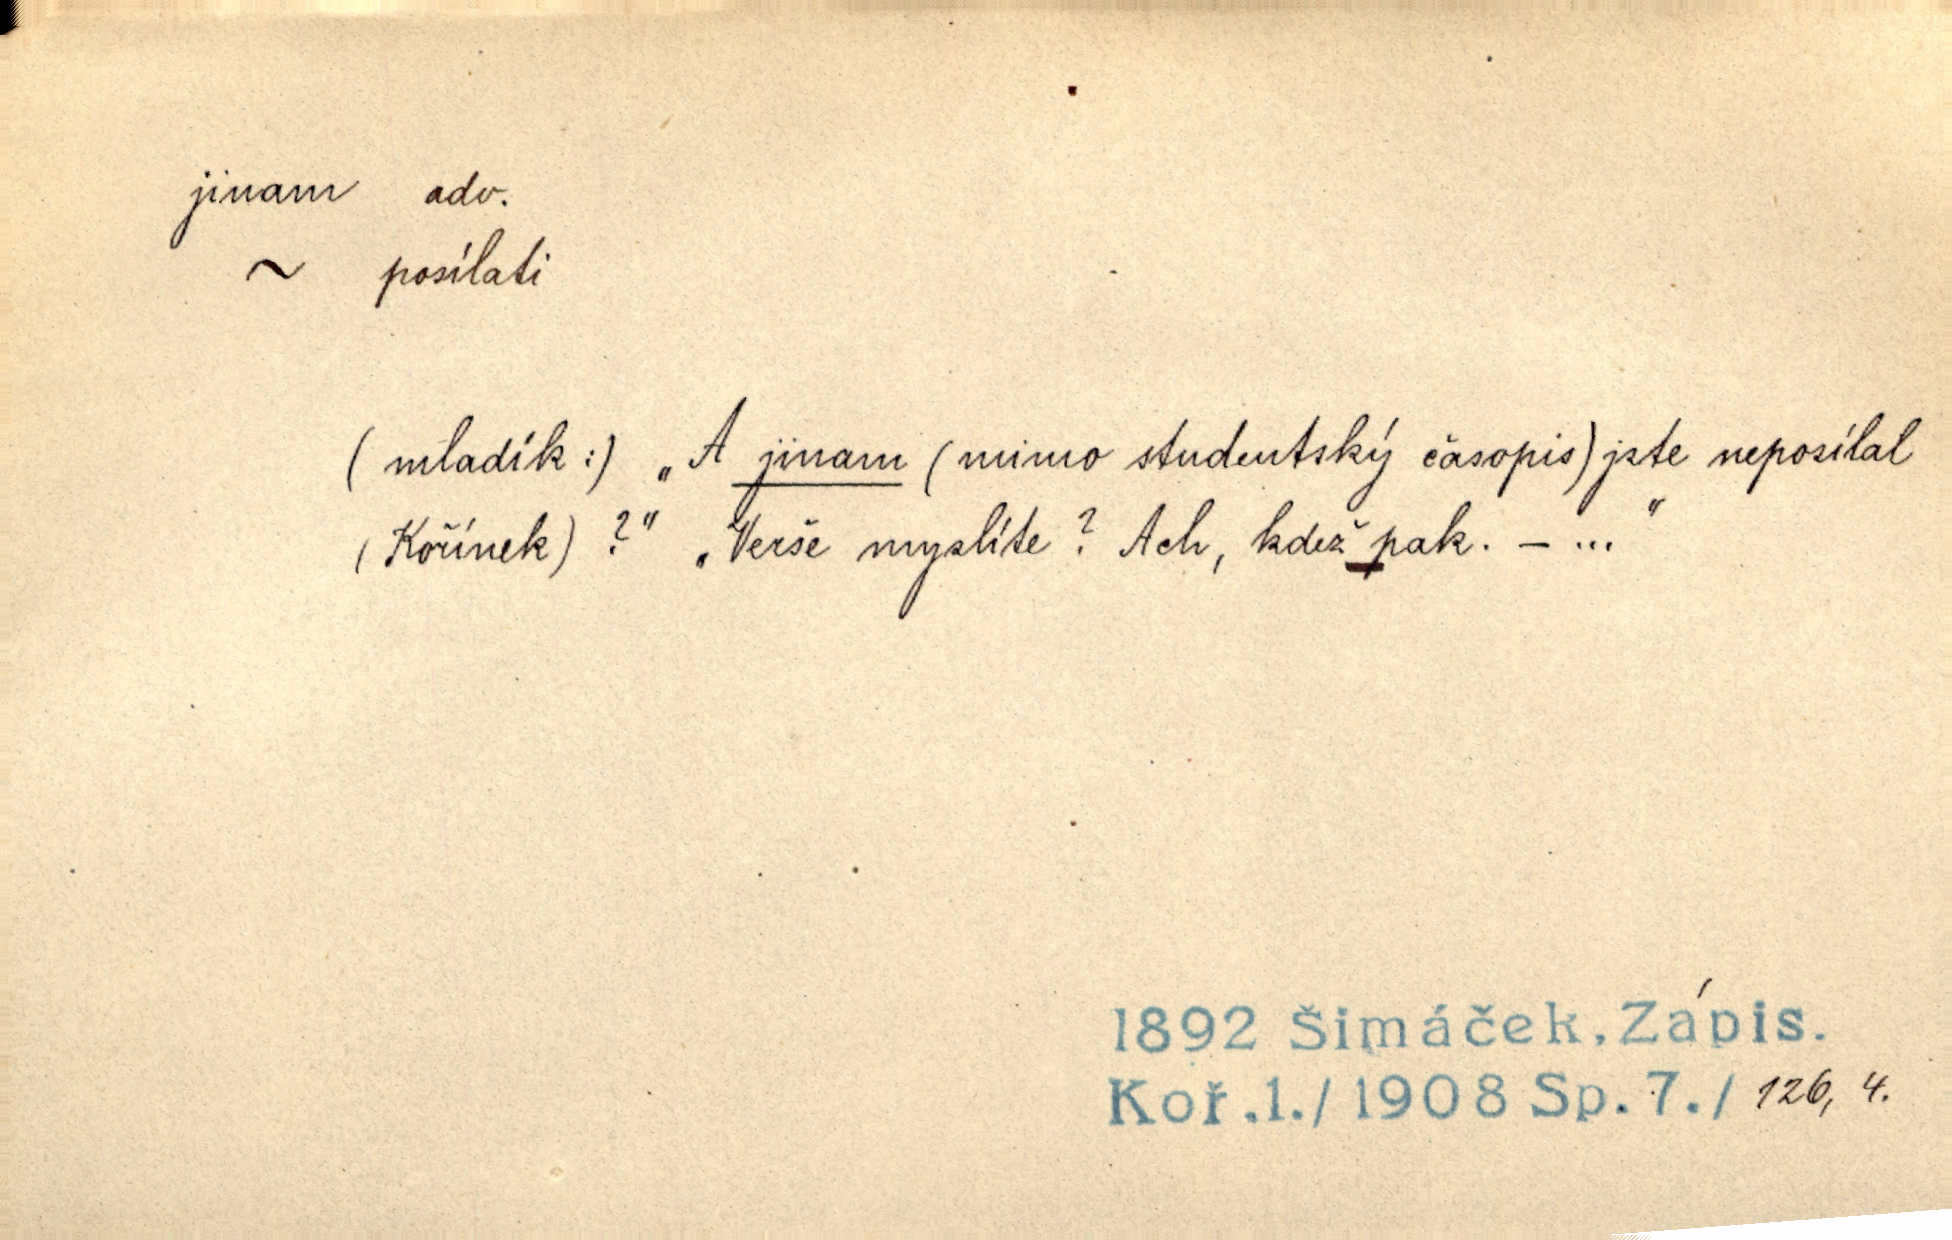 jinam adv.
~ posílati
(mladík:) „A jinam (mimo studentský časopis) jste neposílal
(Kořínek)?" „Verše myslíte? Ach, kdež pak. – ..."
1892 Šimáček, Zápis.
Koř.1./1908 Sp.7./ 126, 4.